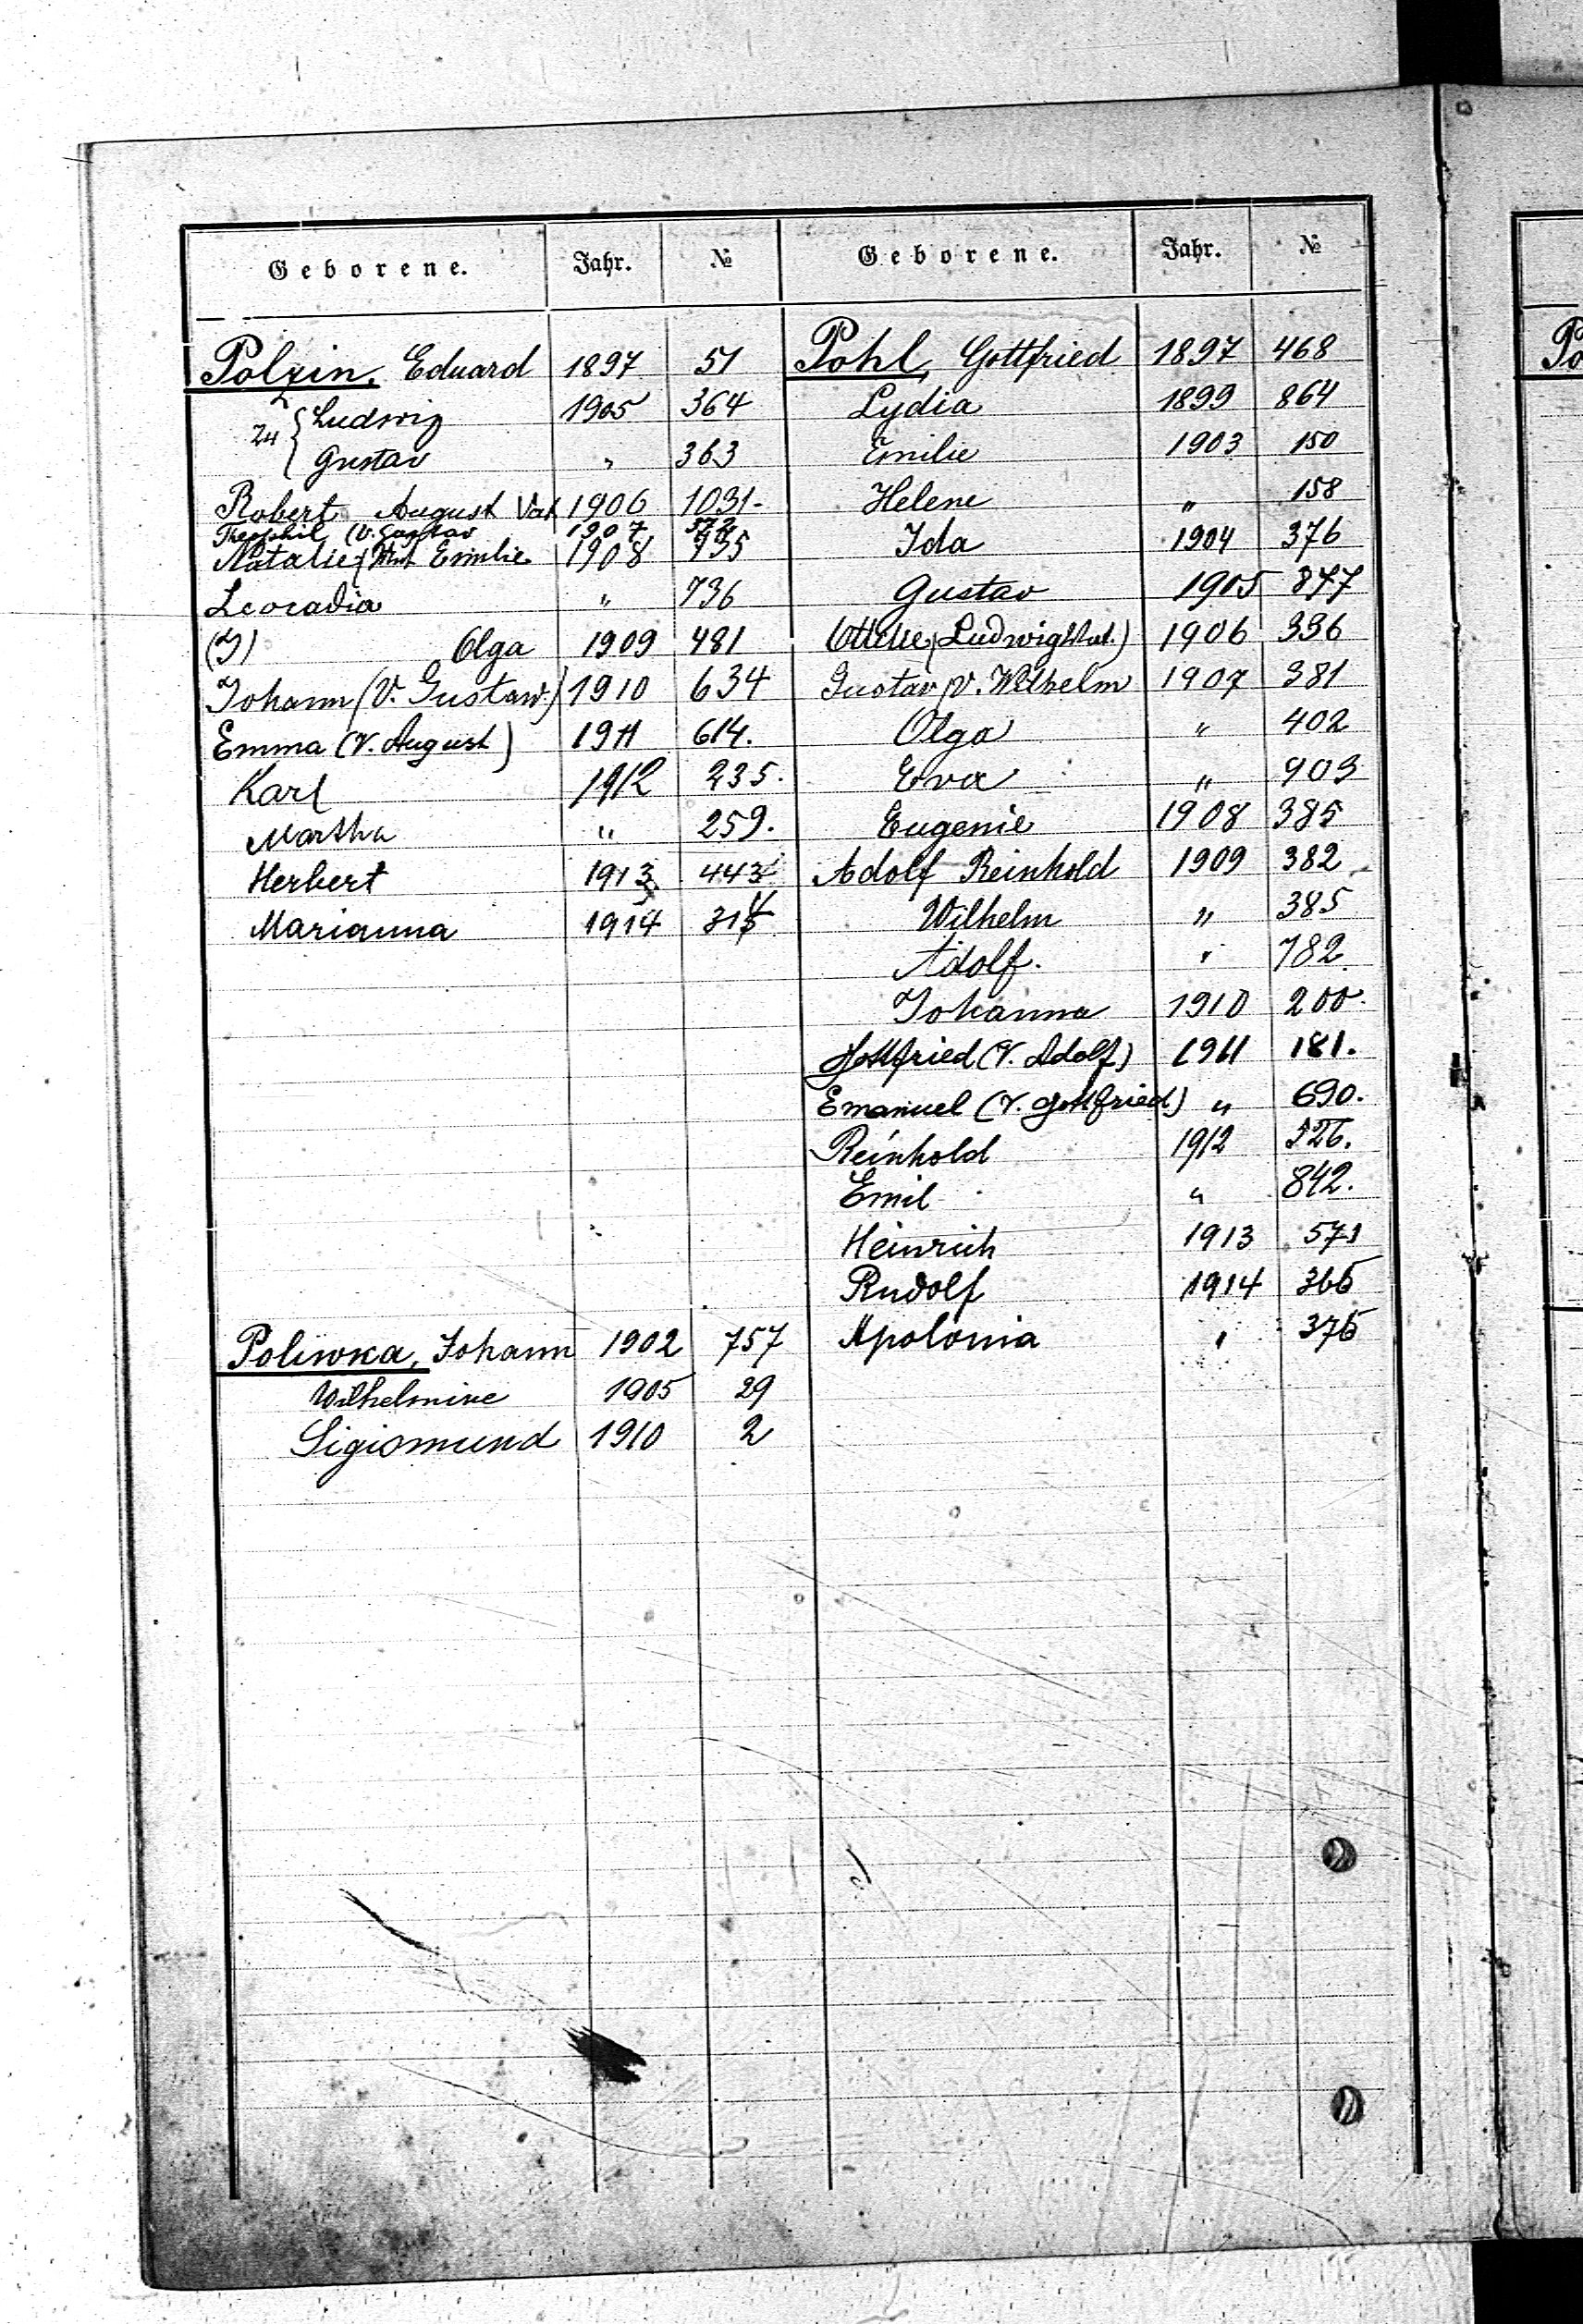 Geborene. Jahr. №
Polzin, Eduard 1897 51
Zw { Ludwig 1905 364
Gustav " 363
Robert August Vat 1906 1031-
Theophil (V. Gustav 1907 572
Natalie (Mut Emilie 1908 735
Leocadia " 736
(I) Olga 1909 481
Johann (V. Gustaw.) 1910 634
Emma (V. August) 1911 614.
Karl 1912 235.
Martha " 259.
Herbert 1913 443
Marianna 1914 314
Poliwka, Johann 1902 757
Wilhelmine 1905 29
Sigismund 1910 2
Geborene. Jahr. №
Pohl, Gottfried 1897 468
Lydia 1899 864
Emilie 1903 150
Helene " 158
Ida 1904 376
Gustav 1905 877
Ottilie (Ludwig Vat.) 1906 336
Gustav (V. Wilhelm 1907 381
Olga " 402
Eva " 903
Eugenie 1908 385
Adolf Reinhold 1909 382
Wilhelm " 385
Adolf. " 782
Johanna 1910 200.
Gottfried (V. Adolf) 1911 181.
Emanuel (V. Gottfried) " 690.
Reinhold 1912 526.
Emil " 842.
Heinrich 1913 571
Rudolf 1914 366
Apolonia " 376
Po